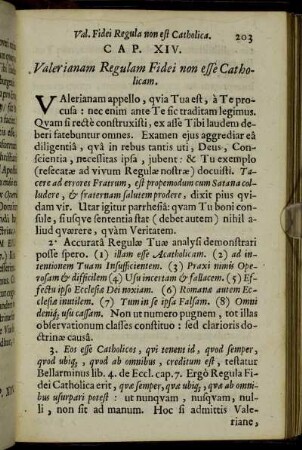 Val. Fidei Regula non est Catholica. 203
CAP. XIV.
Valerianam Regulam Fidei non esse Catho-
licam.
VAlerianam appello, qvia Tua est, à Te pro-
cusa: nec enim ante Te sic traditam legimus.
Qvam si rectè construxisti, ex asse Tibi laudem de-
beri fatebuntur omnes. Examen ejus aggrediar eâ
diligentiâ, qvâ in rebus tantis uti, Deus, Con-
scientia, necessitas ipsa, jubent: & Tu exemplo
(resecatæ ad vivum Regulæ nostræ) docuisti. Ta-
cere ad errores Fratrum, est propemodum cum Satana col-
ludere, & fraternam salutem prodere, dixit pius qvi-
dam vir. Utar igitur parrhesiâ: qvam Tu boni con-
sule, si usqve sententia stat (debet autem) nihil a-
liud qværere, qvàm Veritatem.
2. Accuratâ Regulæ Tuæ analysi demonstrari
posse spero. (1) illam esse Acatholicam. (2) ad in-
tentionem Tuam Insufficientem. (3) Praxi nimis Ope-
rosam & difficilem (4) Usu incertam & fallacem. (5) Ef-
fectu ipso Ecclesiæ Dei noxiam. (6) Romanæ autem Ec-
clesiæ inutilem. (7) Tum in se ipsa Falsam. (8) Omni
deniq; usu cassam. Non ut numero pugnem, tot illas
observationum classes constituo: sed clarioris do-
ctrinæ causâ.
3. Eos esse Catholicos, qvi tenent id, qvod semper,
qvod ubiq;, qvod ab omnibus, creditum est, testatur
Bellarminus lib. 4. de Eccl. cap. 7. Ergò Regula Fi-
dei Catholica erit, qvæ semper, qvæ ubiq;, qvæ ab omni-
bus usurpari potest: ut nunqvam, nusqvam, nul-
li, non sit ad manum. Hoc si admittis Vale-
riane,